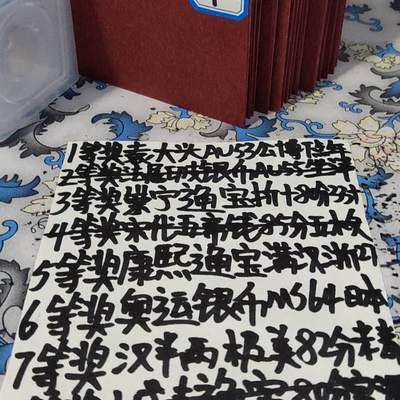 1等奖袁大头AU53公博信年
2等奖法属坡银AU55坐洋
3等奖崇宁通宝折十80分
4等奖宋代五帝钱85分五枚
5等奖康熙通宝满汉浙
6等奖奥运银MS64日本
7等奖汉半两极美82分精